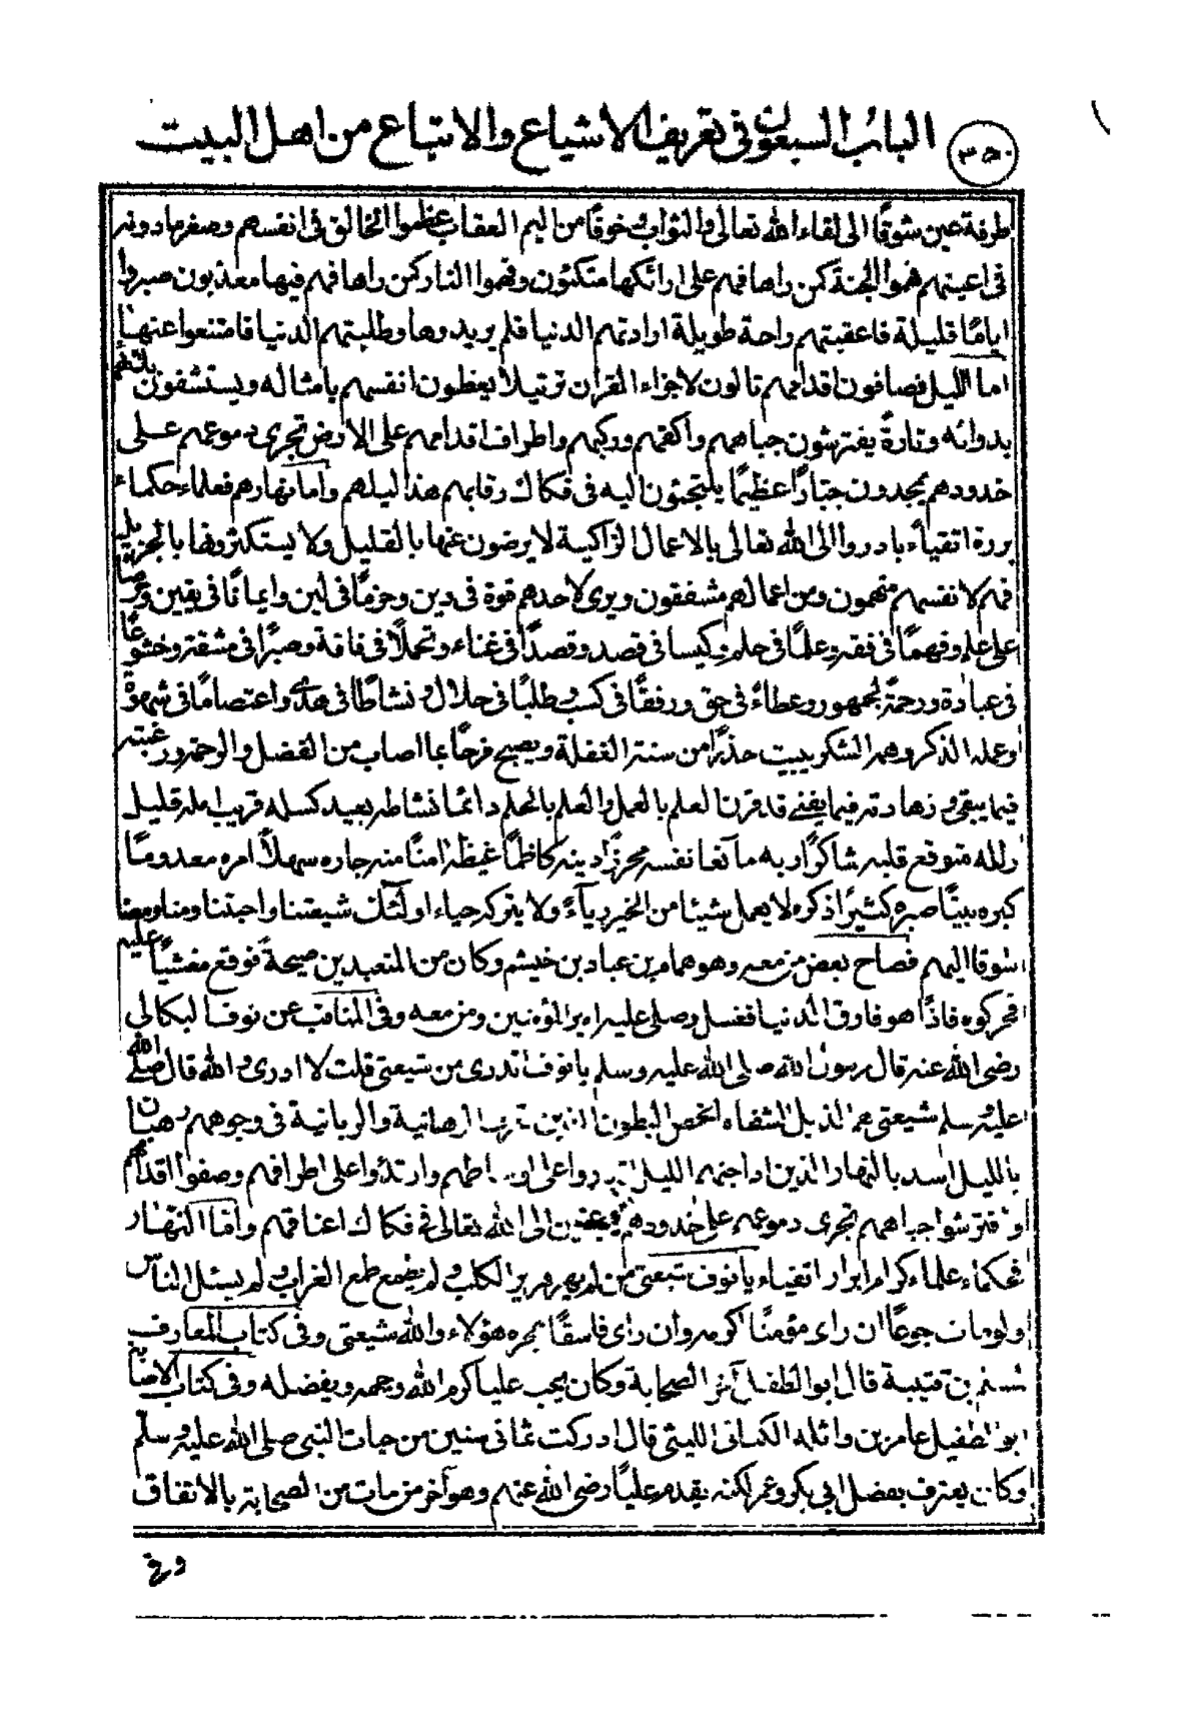 ٣٥٠
الباب السبعون فى تعريف الاشياع والاتباع من اهل البيت
طرفة عين شوقًا الى لقاء الله تعالى والثواب خوفًا من اليم العقاب عظموا الخالق فى انفسهم وصغر ما دونه
فى اعينهم فهم والجنة كمن راها فهم على ارائكها متكئون وهم والنار كمن راها فهم فيها معذبون صبروا
ايامًا قليلة فاعقبتهم راحة طويلة ارادتهم الدنيا فلم يريدوها وطلبتهم الدنيا فامتنعوا عنها
اما الليل فصافون اقدامهم تالون لاجزاء القران ترتيلًا يعظون انفسهم بامثاله ويستشفون
بدوائه وتارةً يفترشون جباههم واكفهم وركبهم واطراف اقدامهم على الارض تجرى دموعهم على
خدودهم يمجدون جبارًا عظيمًا يلتجئون اليه فى فكاك رقابهم هذا ليلهم واما نهارهم فعلماء حكماء
بررة اتقياء بادروا الى الله تعالى بالاعمال الزاكية لا يرضون عنها بالقليل ولا يستكثرونها بالجزيل
فهم لانفسهم متهمون ومن اعمالهم مشفقون ويرى لاحدهم قوة فى دين وحزمًا فى لين وايمانًا فى يقين وحرصا
على علم وفهمًا فى فقه وعلمًا فى حلم وكيسا فى قصد وقصدًا فى غناء وتحملًا فى فاقة وصبرًا فى مشقة وخشوعًا
فى عبادة ورحمةً لجمهور وعطاءً فى حق ورفقًا فى كسب وطلبًا فى حلال ونشاطًا فى هدى واعتصامًا فى شهوة
وعمله الذكر وهمه الشكر يبيت حذرًا من سنة الغفلة ويصبح فرحًا بما اصاب من الفضل والرحمة ورغبته
فيما يبقى وزهادته فيما يفنى قد قرن العلم بالعمل والعلم بالحلم دائمًا نشاطه بعيد كسله قريب امله قليل
زلله متوقع قلبه شاكرًا ربه مانعا نفسه محرزًا دينه كاظمًا غيظه امنًا منه جاره سهلًا امره معدومًا
كبره بينًا صبره كثيرًا ذكره لا يعمل شيئا من الخير رياءً ولا يتركه حياء اولئك شيعتنا واحبتنا ومنا ومعنا
شوقا اليهم فصاح بعض من معه وهو همام بن عباد بن خيثم وكان من المتعبدين صيحةً فوقع مغشيًا عليه
فحركوه فاذا هو فارق الدنيا فغسل وصلى عليه امير المؤمنين ومن معه وفى المناقب عن نوف البكالى
رضى الله عنه قال رسول الله صلى الله عليه وسلم يا نوف اتدرى من شيعتى قلت لا ادرى والله قال صلى الله
عليه وسلم شيعتى هم الذبل الشفاه الخمص البطون الذين تعرف الرهبانية والربانية فى وجوههم رهبان
بالليل اسد بالنهار الذين اذا جنهم الليل اتزروا على اوساطهم وارتدوا على اطرافهم وصفوا اقدامهم
وافترشوا جباههم تجرى دموعهم على خدودهم الى الله تعالى فى فكاك اعناقهم واما النهار
فحكماء علماء كرام ابرار اتقياء يا نوف شيعتى من لم يهر هرير الكلب ولم يطمع طمع الغراب ولم يسئل الناس
ولو مات جوعًا ان راى مؤمنًا اكرمه وان راى فاسقًا هجره هؤلاء والله شيعتى وفى كتاب المعارف
بن قتيبة قال ابو الطفيل الصحابة وكان يحب عليا كرم الله وجهه ويفضله وفى كتاب الاصابة
ابو الطفيل عامر بن واثله الكنانى الليثى قال ادركت ثمانى سنين من حيات النبى صلى الله عليه وسلم
وكان يعترف بفضل ابى بكر وعمر لكنه يقدم عليًا رضى الله عنهم وهو آخر من مات من الصحابة بالاتفاق
وفى